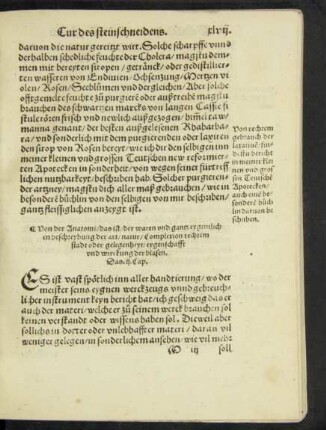 Cur des steinschneidens. xlvij.
daruon die natur gereitzt wirt. Solche scharpffe vnnd
derhalben schedliche feuchte der Cholera / magstu dem-
men mit bereyten siropen / getränck / oder gedistillier-
ten wassern von Endiuien / Ochsenzung / Mertzen vi
olen / Rosen / Seeblůmen vnd dergleichen / Aber solche
offtgemelte feuchte zů purgiere oder außtreibe magstu
brauchen des schwartzen marcks von langen Cassie fi
stule rören frisch vnd newlich außgezogen / himel tawi
manna genant / der besten außgelesenen Rhabarba-
ra / vnd sonderlich mit dem purgierenden oder laxatiuen
den sirop von Rosen bereyt / wie ich dir den selbigen inn
meiner kleinen vnd grossen Teutschen new reformier-
ten Apotecken in sonderheit / von wegen seiner fürtreff
lichen nutzbarkeyt / beschriben hab. Solcher purgieren
der artzney / magstu dich aller maß gebrauchen / wie in
besonderē büchlin von den selbigen von mir beschriben /
gantz fleissiglichen anzeygt ist.
Von rechtem
gebrauch der
laxatiuē / fin-
destu bericht
in meiner klei
nen vnd gros
sen Teutschē
Apotecken /
auch eine be
sonderē büch
lin daruon be
schriben.
Von der Anatomi / das ist / der waren vnd gantz eygentlich
en beschreybung der art / natur / Complexion rechtem
stadt oder gelegenheyt eygenschafft
vnd würckung der blasen.
Das. Cap.
ES ist vast spötlich inn aller handtierung / wo der
meister seins eygnen werckzeugs vnnd gebreuch-
licher instrument keyn bericht hat / ich geschweig das er
auch der materi / welcher zů seinem werck brauchen sol
keinen verstandt oder wissens haben sol. Die weil aber
sollichs in dorter oder vnlebhaffter materi / daran vil
weniger gelegen / in sonderlichem ansehen / wie vil mehr
G iij soll